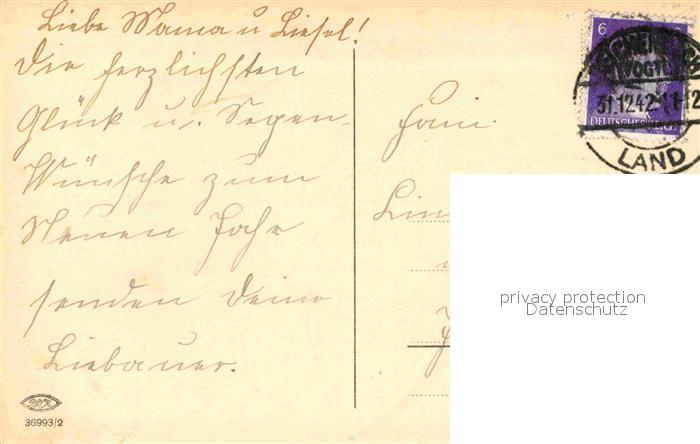 Liebe Mama u Liesel!
Die herzlichsten
Glück u. Segen-
Wünsche zum
Neuen Jahr
senden Deine
Liebauer.
6
(VOGTL
31.12.42-11-12
DEUTSCHES REICH
LAND
Frau
privacy protection
Datenschutz
36993/2